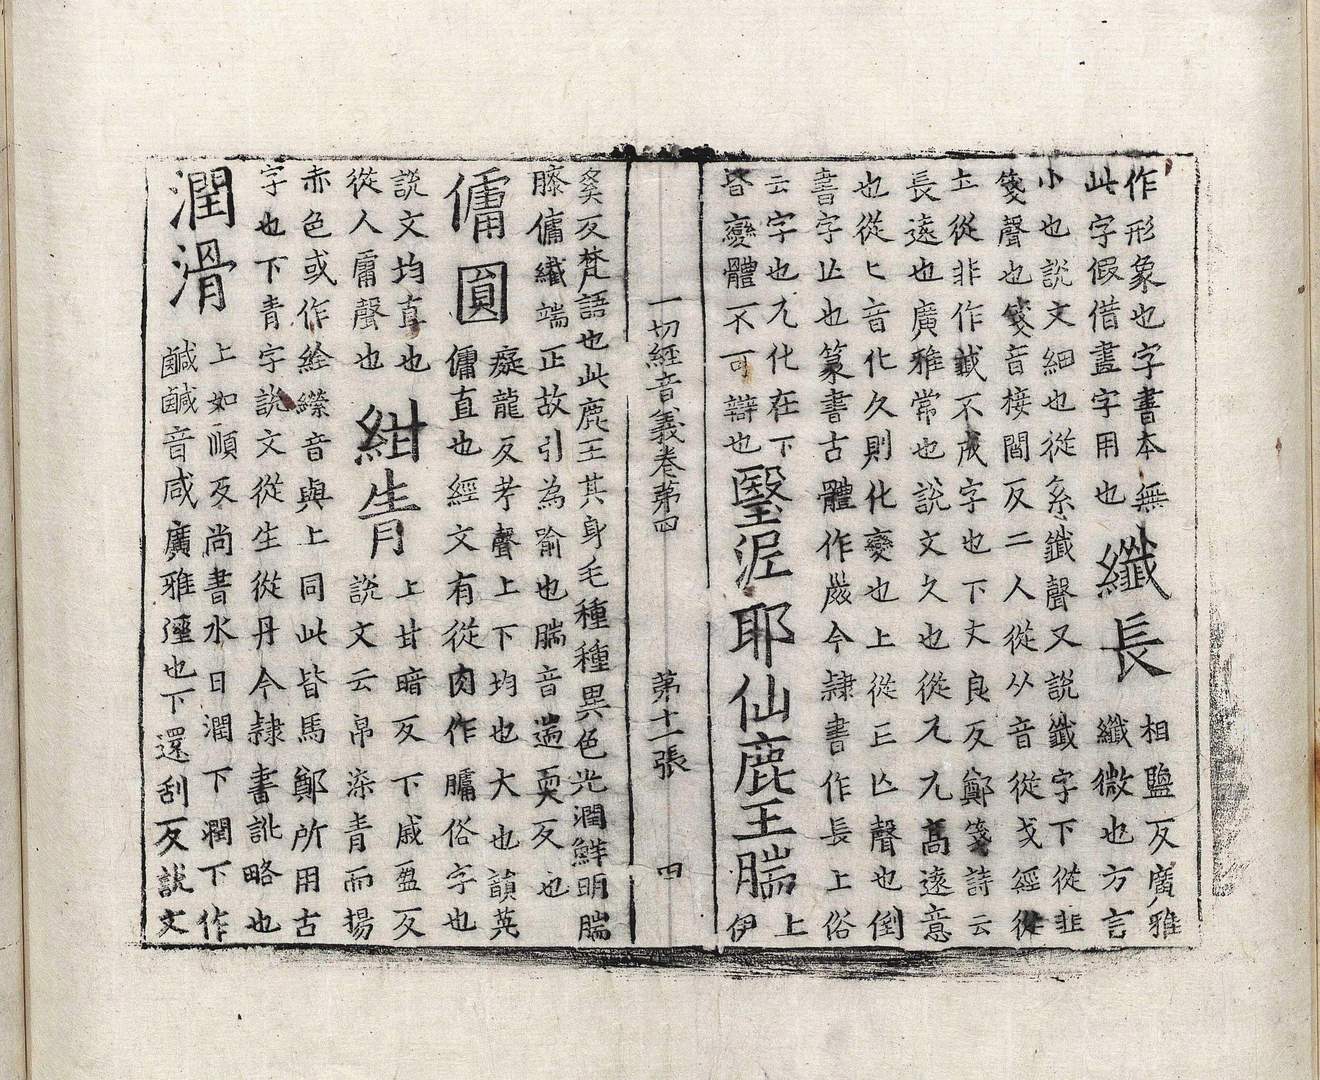 作形象也字書本無
此字假借晝字用也
纖長
相鹽反廣雅
纖微也方言
小也說文細也從糸韱聲又說韱字下從韭
聲也音接閻反二人從从音從戈經從
從非作不成字也下丈良反鄭箋詩云
長遠也廣雅常也說文久也從兀兀髙遠意
也從匕音化久則化變也上從亾聲也倒
書字亾也篆書古體作今隷書作長上俗
云字也兀化在下
皆變體不可辯也
瑿泥耶仙鹿王腨
上
伊
一切經音義卷第四 第十一張 四
癸反梵語也此鹿王其身毛種種異色光潤鮮明腨
膝傭纖端正故引為喻也腨音遄耎反也
傭圓
癡龍反考聲上下均也大也韻英
傭直也經文有從肉作俗字也
說文均直也
從人庸聲也
紺青
上甘暗反下戚盈反
說文云帛染青而揚
赤色或作音與上同此皆馬鄭所用古
字也下青字說文從生從丹今隷書訛略也
潤滑
上如順反尚書水日潤下潤下作
鹹鹹音咸廣雅溼也下還刮反說文